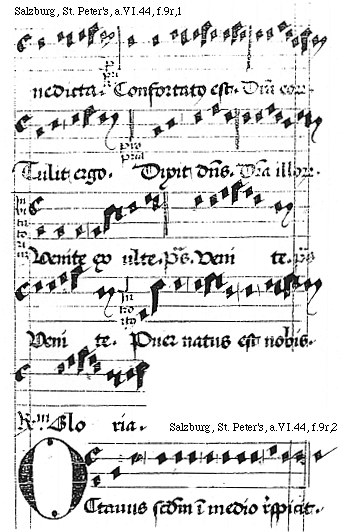 Salzburg, St. Peter's, a.VI.44, f.9r,1
nedicta. Confortatꝰ est. Dīa corr
Tulit ergo. Dixit dn̄s. Dīa illorr.
Venite ex ulte. p̄s. Veni te. p̄s
Veni te. Puer natus est nobis.
Rm̄ Glo ria.
Salzburg, St. Peter's, a.VI.44, f.9r,2
Octauus scdm ī medio